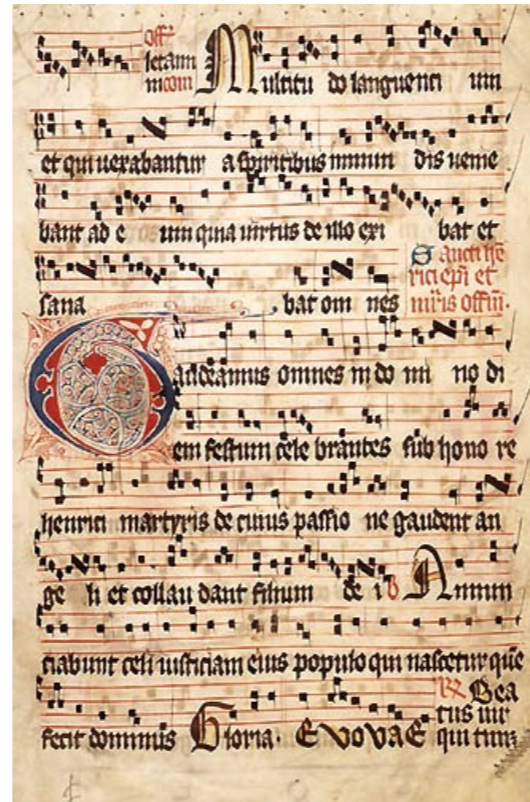 Off
letamini
in com Multitu do languenti um
et qui uexabantur a spiritibus inmun dis uenie
bant ad e um quia uirtus de illo exi bat et
sana bat om nes
Sancti hē
rici epi et
mris offm.
Gaudeamus omnes in do mi no di
em festum cele brantes sub hono re
henrici martyris de cuius passio ne gaudent an
ge li et collau dant filium de i
Annun
ciabunt celi iusticiam eius populo qui nascetur quē
fecit dominus Gloria. EVOVAE
Bea
tus uir
qui tim